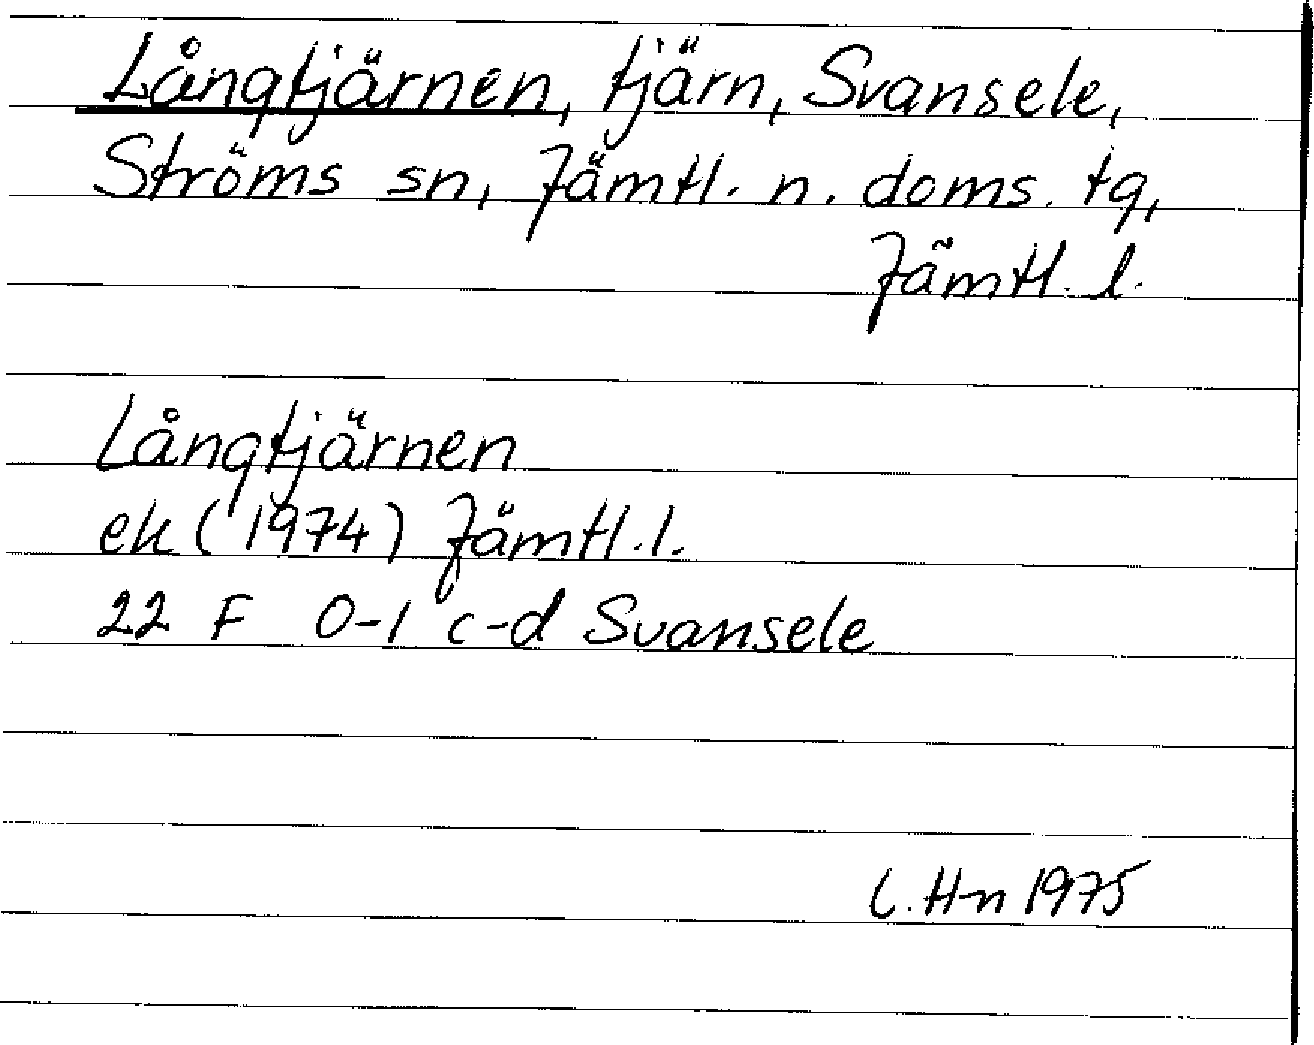 Långtjärnen, tjärn, Svansele,
Ströms sn, Jämtl. n. doms. tg,
Jämtl. l.
Långtjärnen
ek (1974) Jämtl. l.
22 F 0-1 c-d Svansele
C. Hn 1975